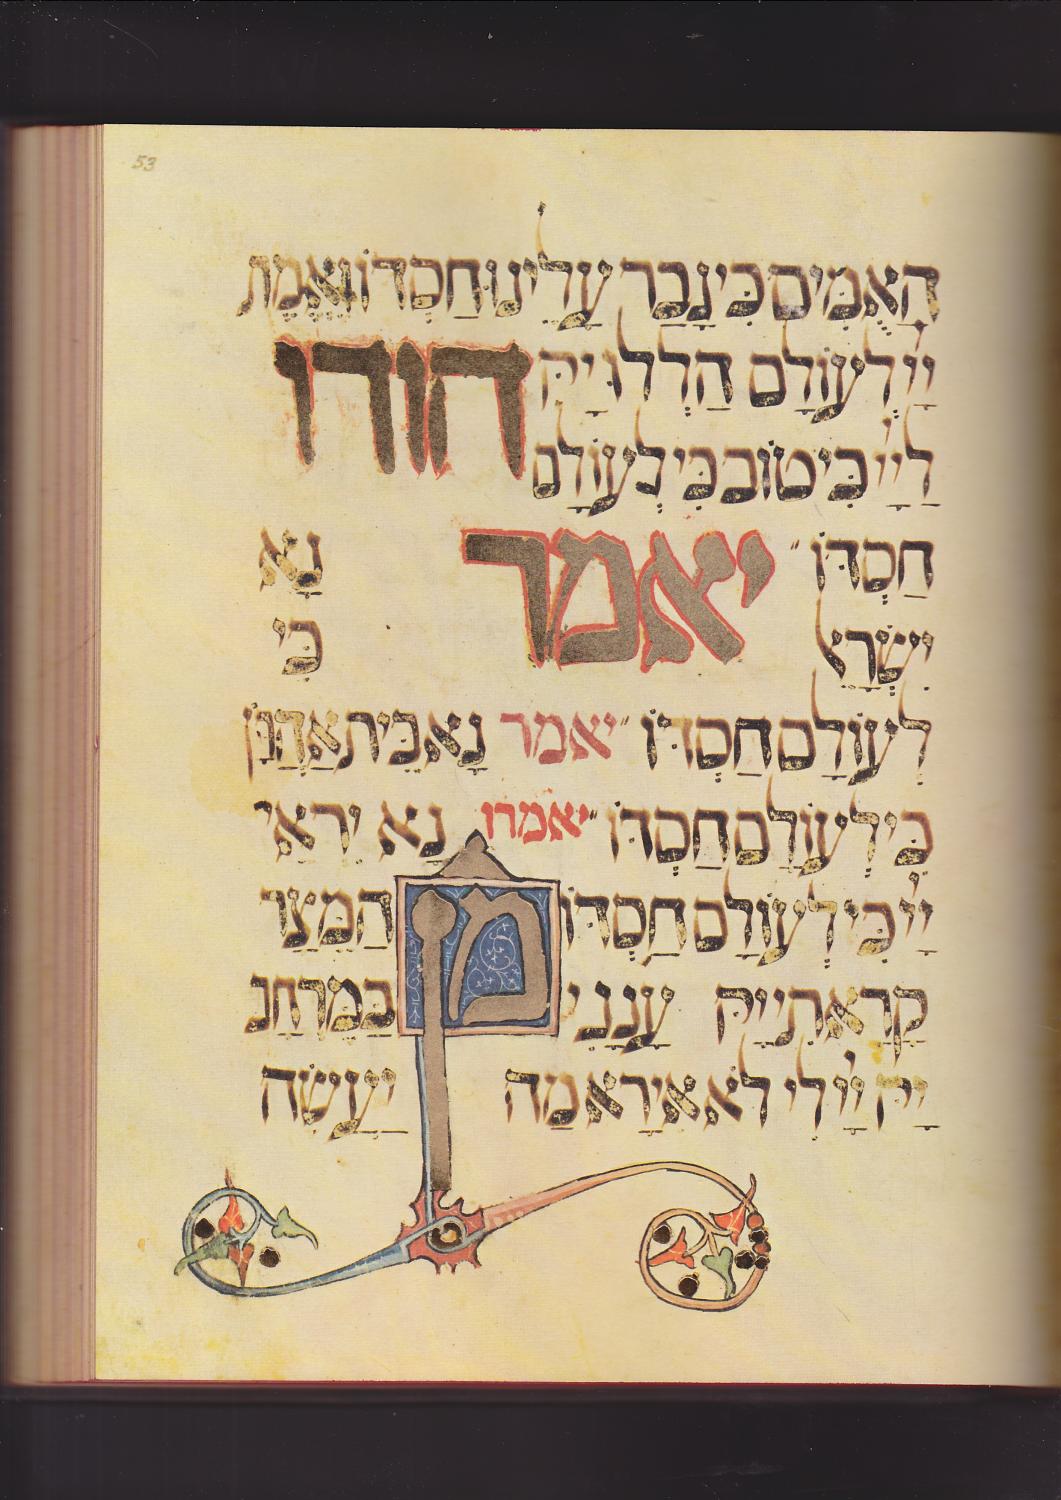 53
הָאֻמִּים כִּי גָבַר עָלֵינוּ חַסְדּוֹ וֶאֱמֶת
יְיָ לְעוֹלָם הַלְלוּ יָהּ הודו
לַיְיָ כִּי טוֹב כִּי לְעוֹלָם
חַסְדּוֹ יאמר נָא
יִשְׂרָאֵל כִּי
לְעוֹלָם חַסְדּוֹ יאמר נָא בֵּית אַהֲרֹן
כִּי לְעוֹלָם חַסְדּוֹ יאמרו נָא יִרְאֵי
יְיָ כִּי לְעוֹלָם חַסְדּוֹ מן הַמֵּצַר
קָרָאתִי יָּהּ עָנָנִי בַמֶּרְחָב
יָהּ יְיָ לִי לֹא אִירָא מַה יַּעֲשֶׂה